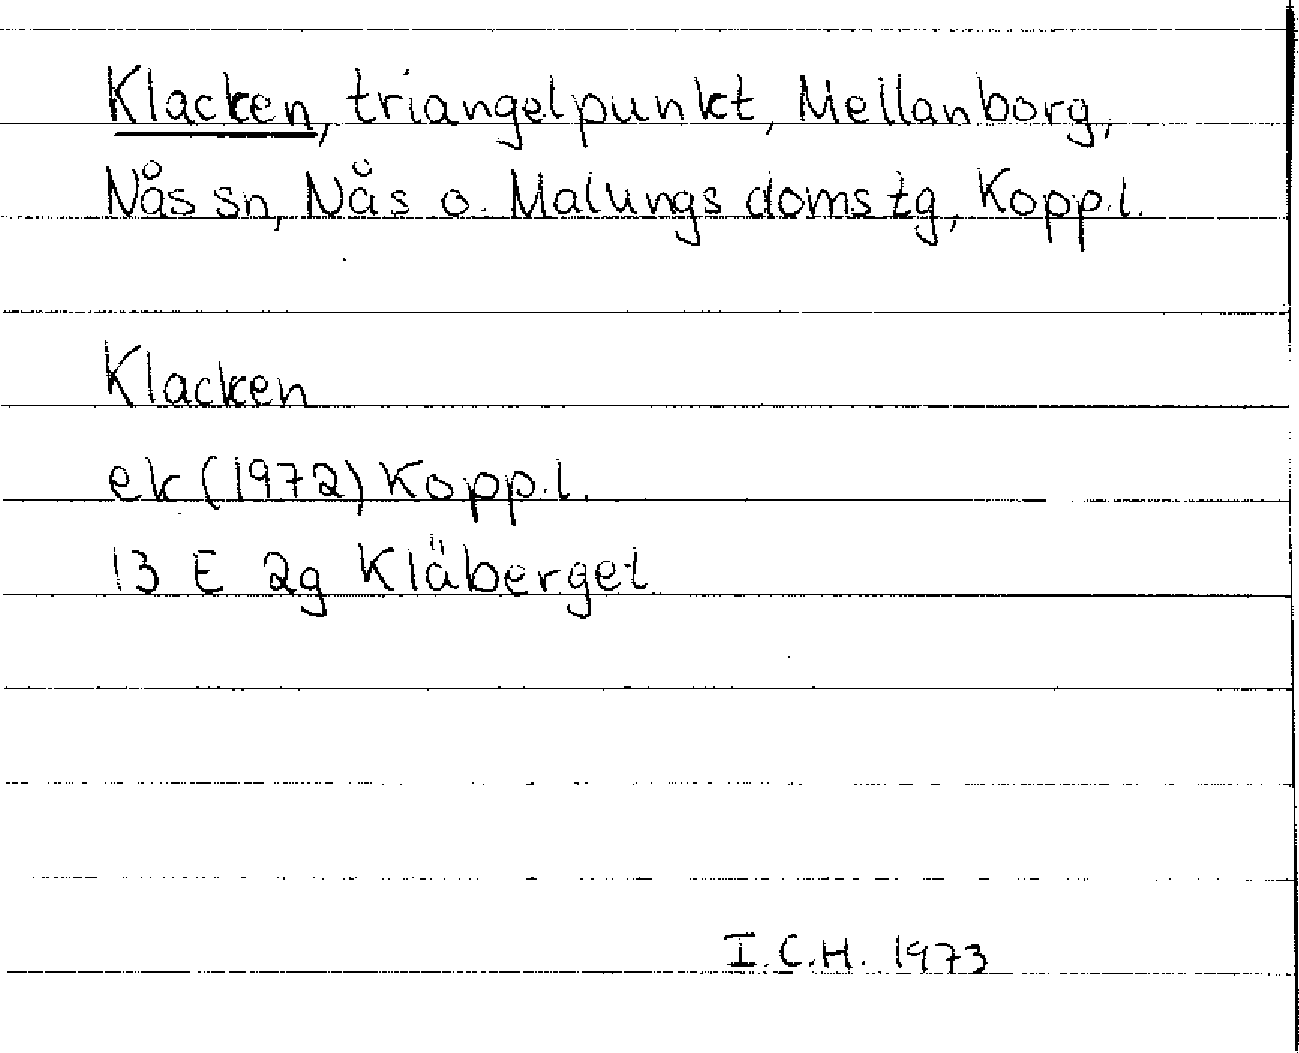 Klacken, triangelpunkt, Mellanborg,
Nås sn, Nås o. Malungs domstg, Kopp.l.
Klacken
ek (1972) Kopp.l.
13 E 2g Kläberget
I.C.H. 1973